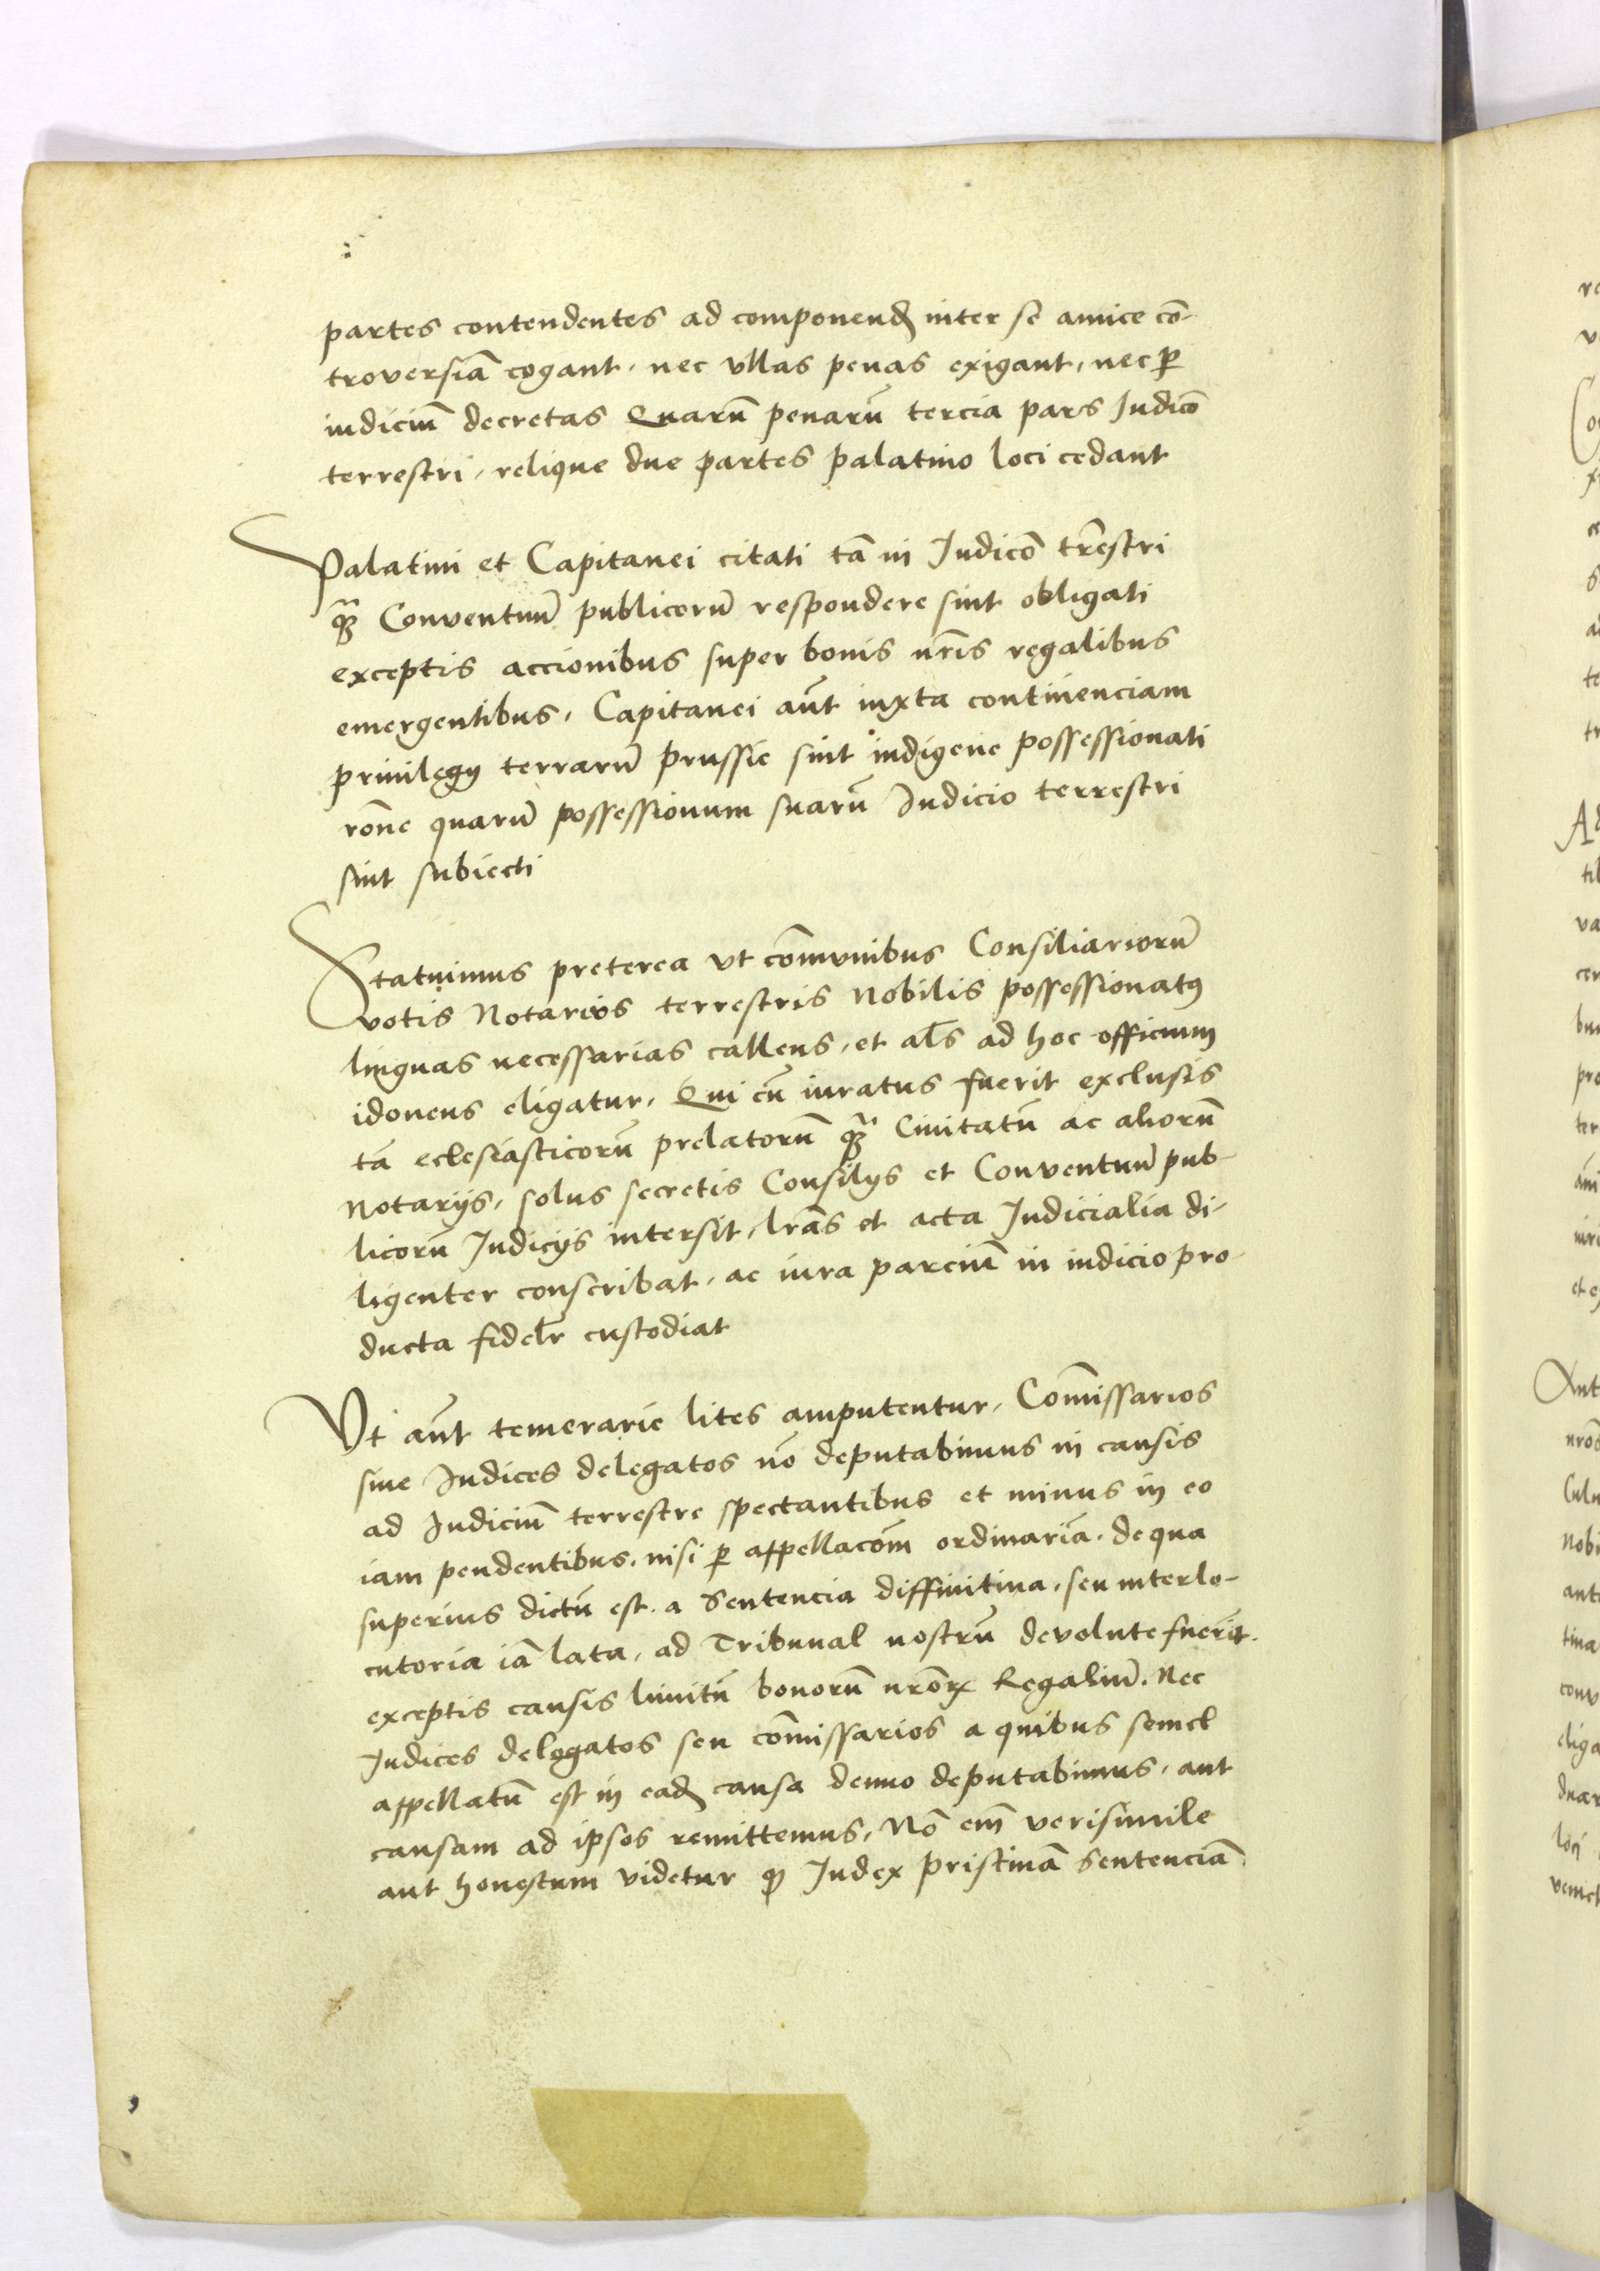 partes contendentes ad componend inter se amice cō-
troversiā cogant, nec ullas penas exigant, nec p̲
iudiciū decretas Quarū penarū tercia pars Iudicō
terrestri, relique due partes palatino loci cedant
Palatini et Capitanei citati tā in Iudicō tr̄estri
q̄ꝫ Conventuū publicorū respondere sint obligati
exceptis accionibus super bonis nr̄is regalibus
emergentibus, Capitanei aūt iuxta continenciam
privilegy terrarū prussie sint indigene possessionati
rōne quarū possessionum suarū Iudicio terrestri
sint subiecti
Statuimus preterea ut cōmunibus Consiliariorū
votis Notarios terrestris Nobilis possessionatꝰ
linguas necessarias callens, et al̄s ad hoc officium
idoneus eligatur, Qui cū iuratus fuerit exclusis
tā eclesiasticorū prelatorū q̄ꝫ Civitatū ac aliorū
Notarijs, solus secretis Consilijs et Conventuū pub-
licorū Iudicijs intersit, lr̄as et acta Iudicialia di-
ligenter conscribat, ac iura parciū in iudicio pro-
ducta fidelr̄ custodiat
Ut aūt temerarie lites amputentur, Cōmissarios
sive Iudices delegatos nō deputabimus in causis
ad Iudiciū terrestre spectantibus et minus in eo
iam pendentibus, nisi p̲ appellacōm ordinariā, de qua
superius dictū est, a Sentencia diffinitiva, seu interlo-
cutoria iā lata, ad Tribunal nostrū devolute fuerīt.
exceptis causis limitū bonorū nr̄oꝝ Regaliū. Nec
Iudices delegatos seu cōmissarios a quibus semel
appellatū est in ead causa denuo deputabimus, aut
causam ad ipsos remittemus, Nō em̄ verisimile
aut honestum videtur ꝙ Iudex pristinā Sentenciā